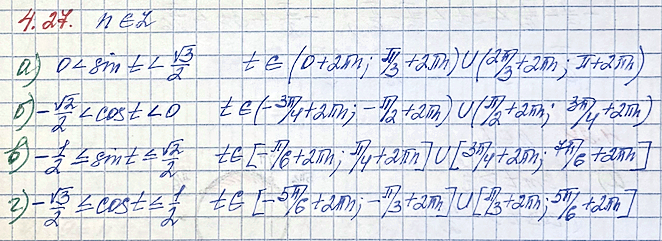 4.27. n ∈ Z
а) 0 < sin t < √3/2 t ∈ (0+2πn; π/3+2πn) U (2π/3+2πn; π+2πn)
б) -√2/2 < cos t < 0 t ∈ (-3π/4+2πn; -π/2+2πn) U (π/2+2πn; 3π/4+2πn)
в) -1/2 ≤ sin t ≤ √2/2 t ∈ [-π/6+2πn; π/4+2πn] U [3π/4+2πn; 7π/6+2πn]
г) -√3/2 ≤ cos t ≤ 1/2 t ∈ [-5π/6+2πn; -π/3+2πn] U [π/3+2πn; 5π/6+2πn]